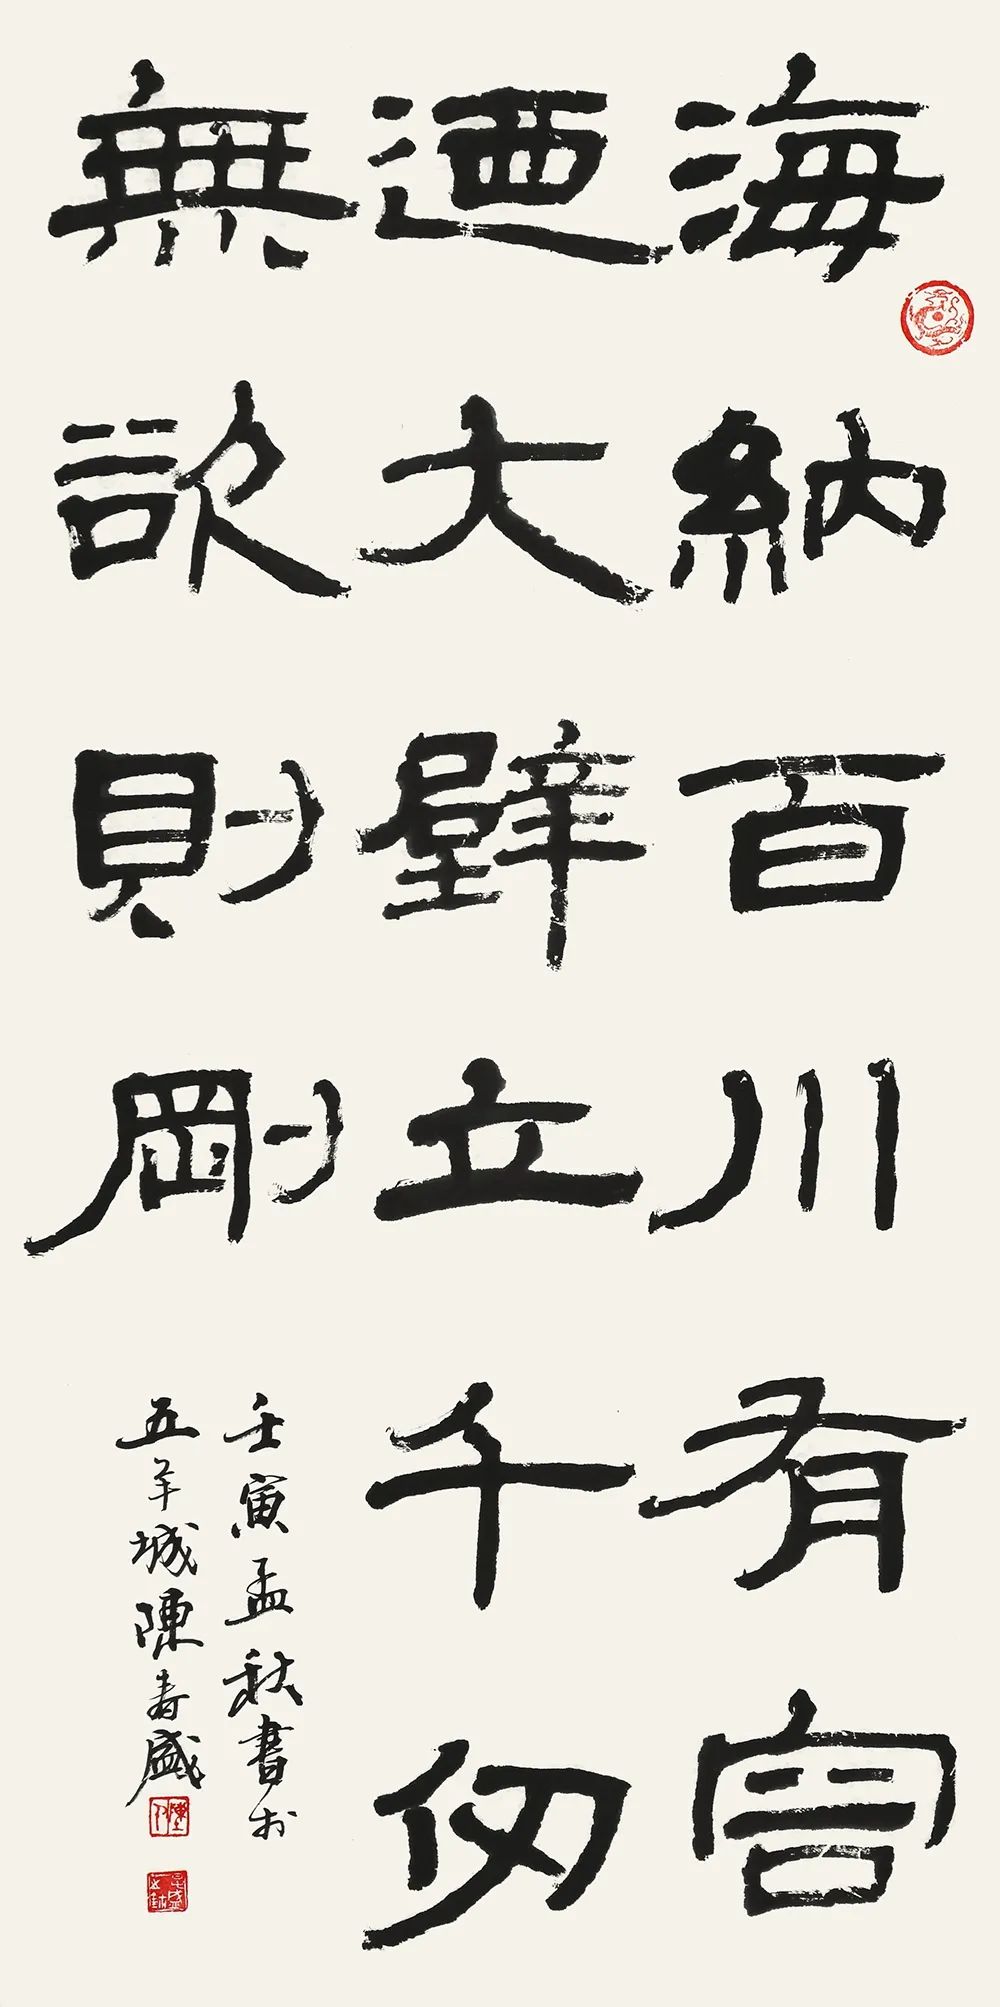 海納百川有容
迺大壁立千仞
無欲則剛
壬寅孟秋書於
五羊城陳寿盛